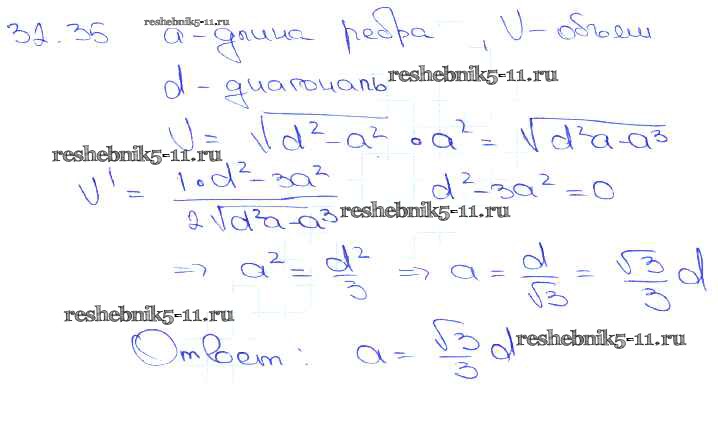 reshebnik5-11.ru
32.35 a - длина ребра, V - объем
d - диагональ reshebnik5-11.ru
V = √(d² - a²) • a² = √(d²a - a³)
reshebnik5-11.ru
V' = (1 • d² - 3a²) / (2√(d²a - a³)) d² - 3a² = 0
reshebnik5-11.ru
=> a² = d²/3 => a = d/√3 = √3/3 d
reshebnik5-11.ru
Ответ: a = √3/3 d reshebnik5-11.ru